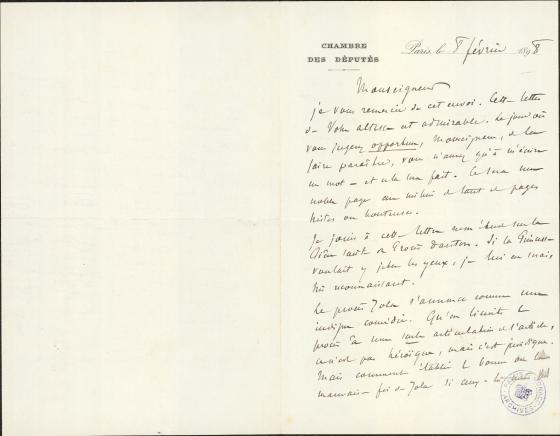 CHAMBRE
DES DÉPUTÉS
Paris, le 8 février 1898
Monseigneur
je vous remercie de cet envoi. Cette lettre
de Votre altesse est admirable. Le jour où
vous jugerez opportun, Monseigneur, de la
faire paraître, vous n'aurez qu'à m'écrire
un mot – et cela sera fait. Ce sera une
noble page au milieu de tant de pages
tristes ou honteuses.
Je joins à cette lettre mon étude sur la
Si la Princesse
voulait y jeter les yeux, je lui en serais
très reconnaissant.
Le procès Zola s'annonce comme une
indigne comédie. Qu'on limite le
procès à une seule articulation de l'article,
ce n'est pas héroïque, mais c'est juridique.
Mais comment établir la bonne ou la
mauvaise foi de Zola si ceux
ARCHIVES